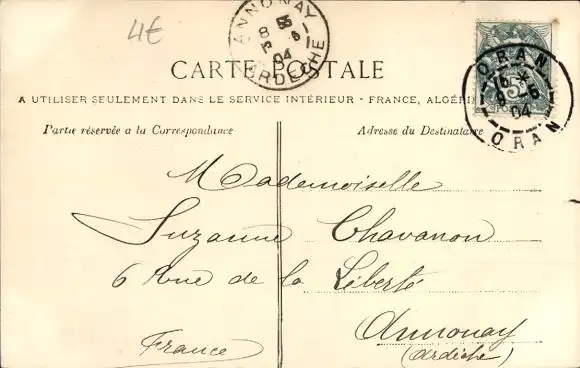 4€
ANNONAY
8 6
04
ARDECHE
CARTE POSTALE
A UTILISER SEULEMENT DANS LE SERVICE INTÉRIEUR - FRANCE, ALGÉRIE
Partie réservée a la Correspondance
Adresse du Destinataire
ORAN
5
04
ORAN
Mademoiselle
Suzanne Chavanon
6 Rue de la Liberté
Annonay
(Ardèche)
France